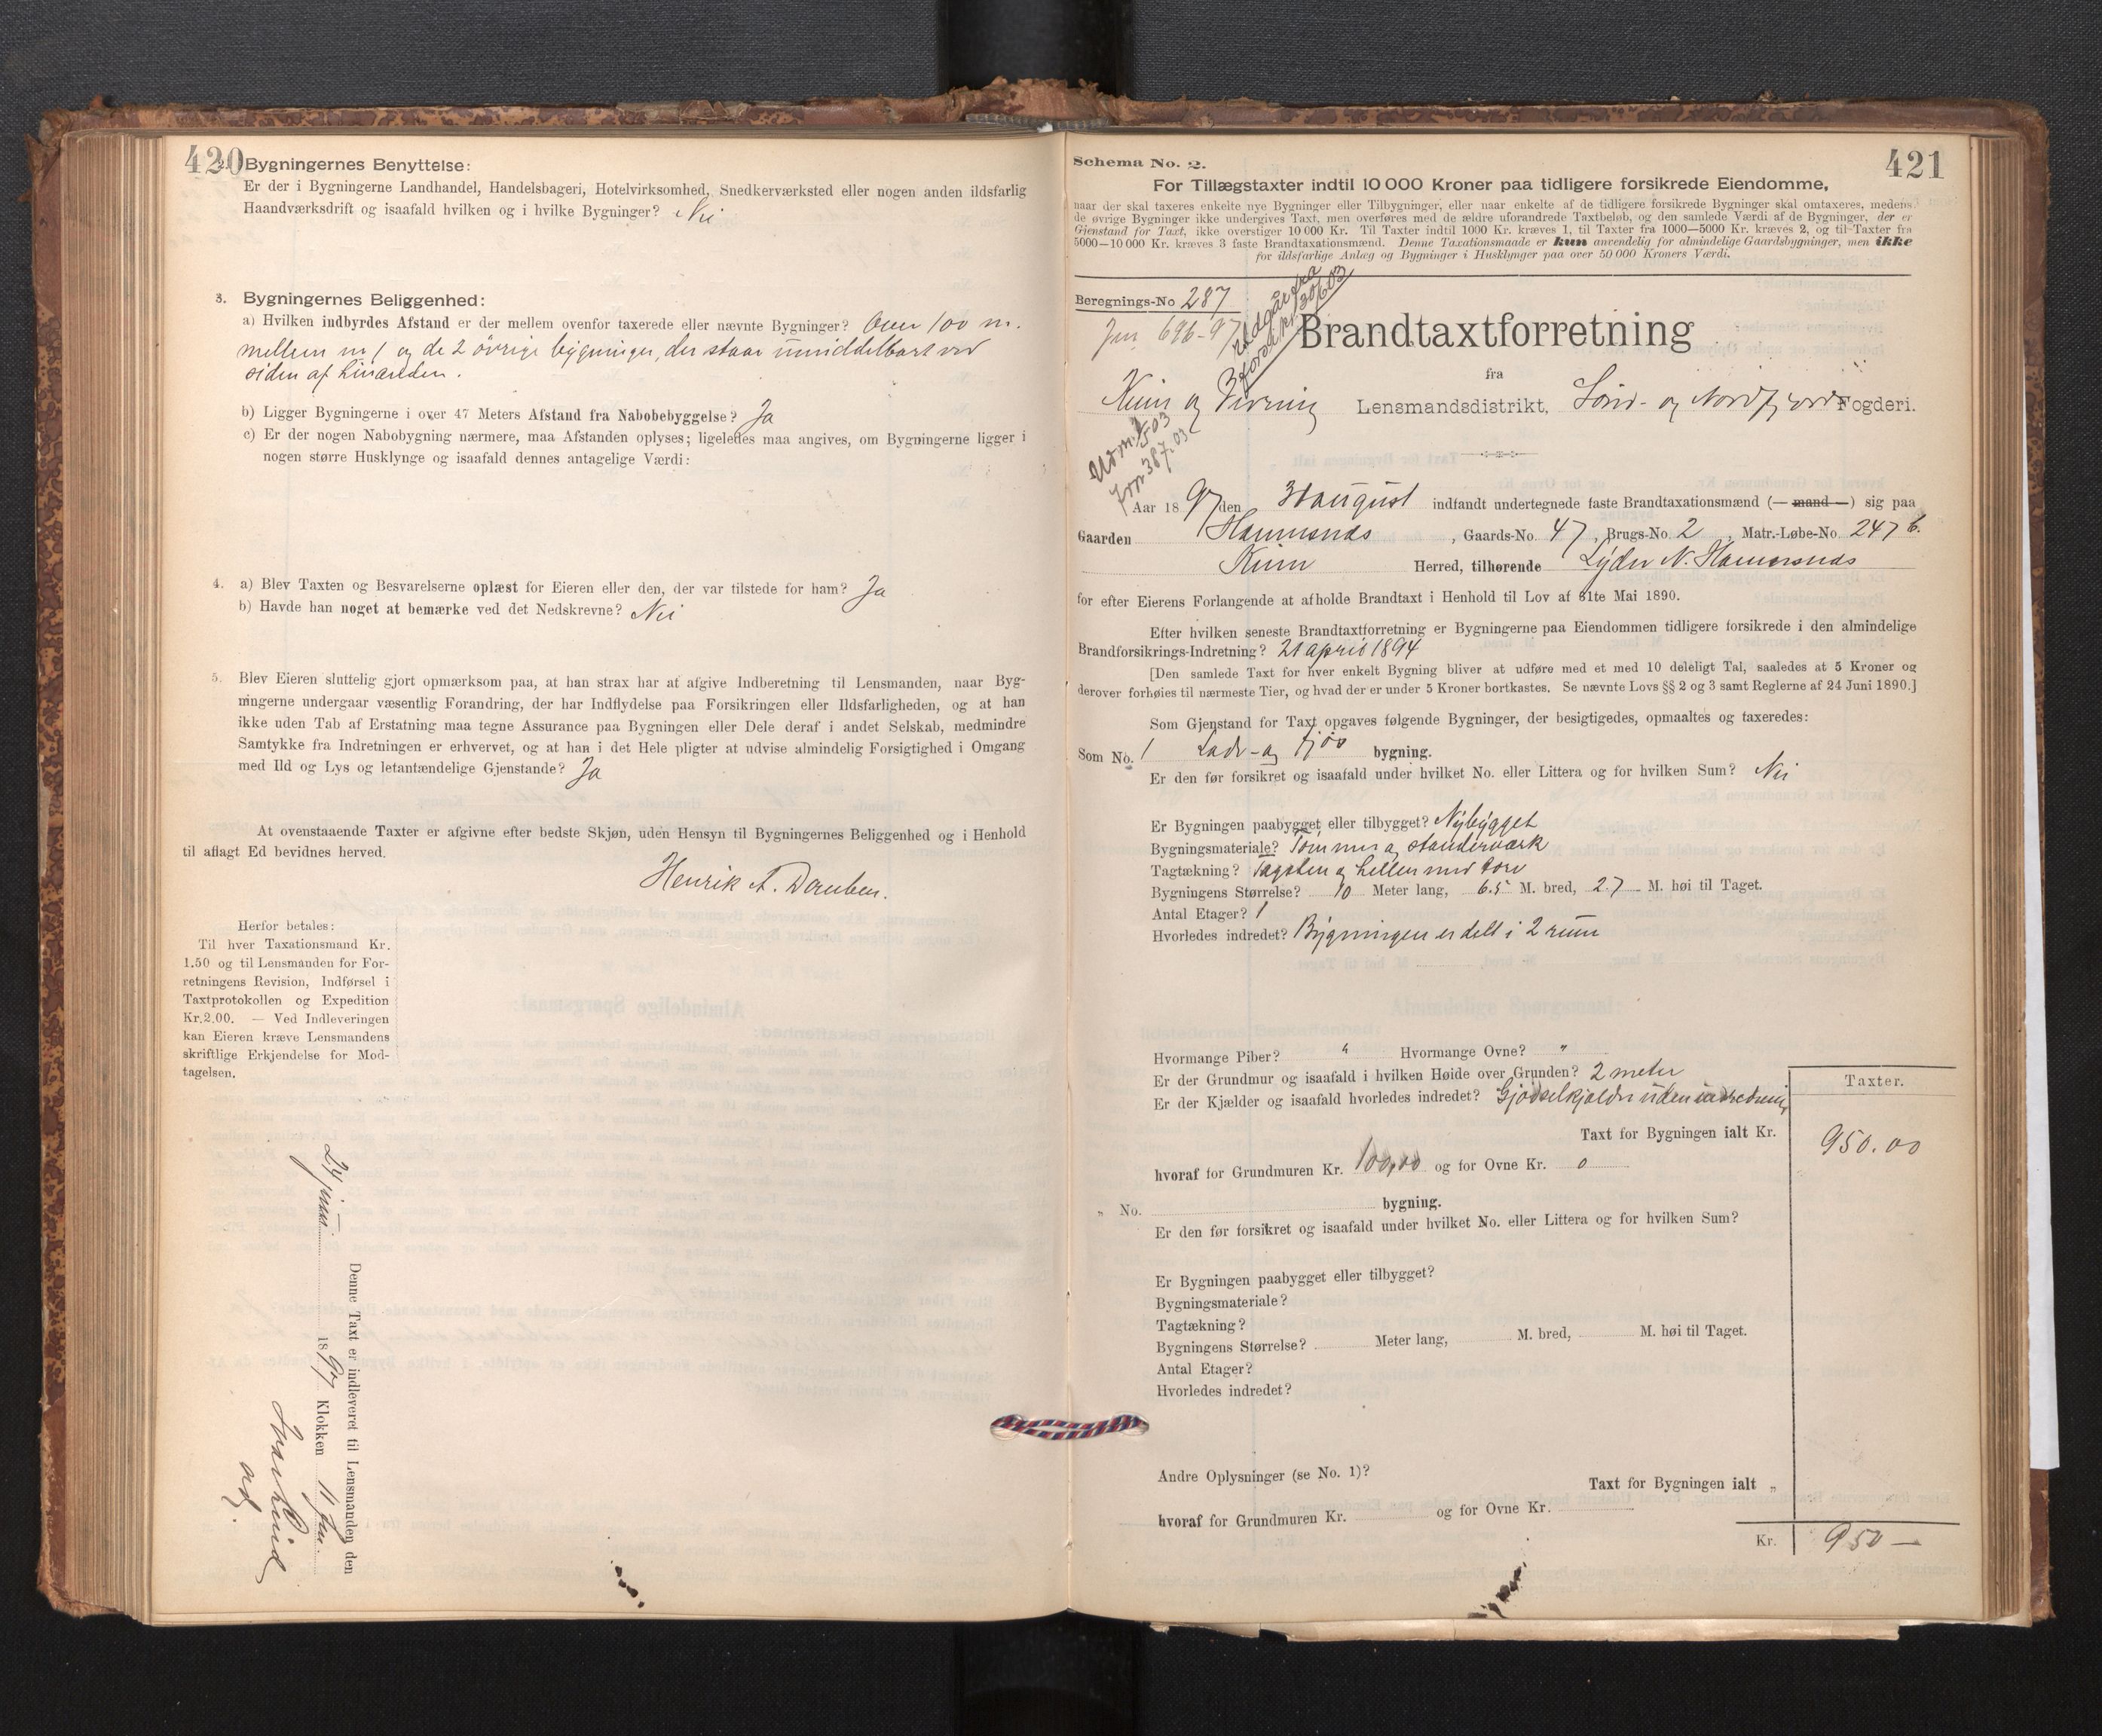 420
2. Bygningernes Benyttelse:
Er der i Bygningerne Landhandel, Handelsbageri, Hotelvirksomhed, Snedkerværksted eller nogen anden ildsfarlig
Haandværksdrift og isaafald hvilken og i hvilke Bygninger? Nei
3. Bygningernes Beliggenhed:
a) Hvilken indbyrdes Afstand er der mellem ovenfor taxerede eller nævnte Bygninger? Over 100 m.
mellem no 1 og de 2 övrige bygninger, der staar umiddelbart ved
siden af hinanden.
b) Ligger Bygningerne i over 47 Meters Afstand fra Nabobebyggelse? Ja
c) Er der nogen Nabobygning nærmere, maa Afstanden oplyses; ligeledes maa angives, om Bygningerne ligger i
nogen større Husklynge og isaafald dennes antagelige Værdi:
4. a) Blev Taxten og Besvarelserne oplæst for Eieren eller den, der var tilstede for ham? Ja
b) Havde han noget at bemærke ved det Nedskrevne? Nei
5. Blev Eieren sluttelig gjort opmærksom paa, at han strax har at afgive Indberetning til Lensmanden, naar Byg-
ningerne undergaar væsentlig Forandring, der har Indflydelse paa Forsikringen eller Ildsfarligheden, og at han
ikke uden Tab af Erstatning maa tegne Assurance paa Bygningen eller Dele deraf i andet Selskab, medmindre
Samtykke fra Indretningen er erhvervet, og at han i det Hele pligter at udvise almindelig Forsigtighed i Omgang
med Ild og Lys og letantændelige Gjenstande? Ja
At ovenstaaende Taxter er afgivne efter bedste Skjøn, uden Hensyn til Bygningernes Beliggenhed og i Henhold
til aflagt Ed bevidnes herved.
Henrik A.
Herfor betales:
Til hver Taxationsmand Kr.
1.50 og til Lensmanden for For-
retningens Revision, Indførsel i
Taxtprotokollen og Expedition
Kr.2.00. — Ved Indleveringen
kan Eieren kræve Lensmandens
skriftlige Erkjendelse for Mod-
tagelsen.
Denne Taxt er indleveret til Lensmanden den
1897 Klokken 11 
421
Schema No. 2.
For Tillægstaxter indtil 10 000 Kroner paa tidligere forsikrede Eiendomme,
naar der skal taxeres enkelte nye Bygninger eller Tilbygninger, eller naar enkelte af de tidligere forsikrede Bygninger skal omtaxeres, medens
de øvrige Bygninger ikke undergives Taxt, men overføres med de ældre uforandrede Taxtbeløb, og den samlede Værdi af de Bygninger, der er
Gjenstand for Taxt, ikke overstiger 10 000 Kr. Til Taxter indtil 1000 Kr. kræves 1, til Taxter fra 1000—5000 Kr. kræves 2, og til Taxter fra
5000—10 000 Kr. kræves 3 faste Brandtaxationsmænd. Denne Taxationsmaade er kun anvendelig for almindelige Gaardsbygninger, men ikke
for ildsfarlige Anlæg og Bygninger i Husklynger paa over 50 000 Kroners Værdi.
Beregnings-No 287
Jnr. 696-97
Udgåt fra
30/6 03
Brandtaxtforretning
fra
Kinn og Lensmandsdistrikt, Sönd- og Nordfjords Fogderi.
Jnr 387.03
Aar 1897 den 31 august indfandt undertegnede faste Brandtaxationsmænd (— mand —) sig paa
Gaarden Hammsnäs, Gaards-No. 47, Brugs-No. 2, Matr.-Løbe-No. 247 b.
Kinn Herred, tilhørende Lyder N. Hammersnäs
for efter Eierens Forlangende at afholde Brandtaxt i Henhold til Lov af 31te Mai 1890.
Efter hvilken seneste Brandtaxtforretning er Bygningerne paa Eiendommen tidligere forsikrede i den almindelige
Brandforsikrings-Indretning? 21 april 1894
[Den samlede Taxt for hver enkelt Bygning bliver at udføre med et med 10 deleligt Tal, saaledes at 5 Kroner og
derover forhøies til nærmeste Tier, og hvad der er under 5 Kroner bortkastes. Se nævnte Lovs §§ 2 og 3 samt Reglerne af 24 Juni 1890.]
Som Gjenstand for Taxt opgaves følgende Bygninger, der besigtigedes, opmaaltes og taxeredes:
Som No. 1 Lade- og Fjös bygning.
Er den før forsikret og isaafald under hvilket No. eller Littera og for hvilken Sum? Nei
Er Bygningen paabygget eller tilbygget? Nybygget
Bygningsmateriale? Tömmer og standerværk
Tagtækning? Tagsten og heller med torv
Bygningens Størrelse? 10 Meter lang, 6.5 M. bred, 2.7 M. høi til Taget.
Antal Etager? 1
Hvorledes indredet? Bygningen er delt i 2 rum
Hvormange Piber? " Hvormange Ovne? "
Er der Grundmur og isaafald i hvilken Høide over Grunden? 2 meter
Er der Kjælder og isaafald hvorledes indredet? Gjödselkjelder uden indredning
Taxter.
Taxt for Bygningen ialt Kr. 950.00
hvoraf for Grundmuren Kr. 100,00 og for Ovne Kr. 0
„ No. bygning.
Er den før forsikret og isaafald under hvilket No. eller Littera og for hvilken Sum?
Er Bygningen paabygget eller tilbygget?
Bygningsmateriale?
Tagtækning?
Bygningens Størrelse? Meter lang, M. bred, M. høi til Taget.
Antal Etager?
Hvorledes indredet?
Andre Oplysninger (se No. 1)?
Taxt for Bygningen ialt „
hvoraf for Grundmuren Kr. og for Ovne Kr.
Kr. 950 —